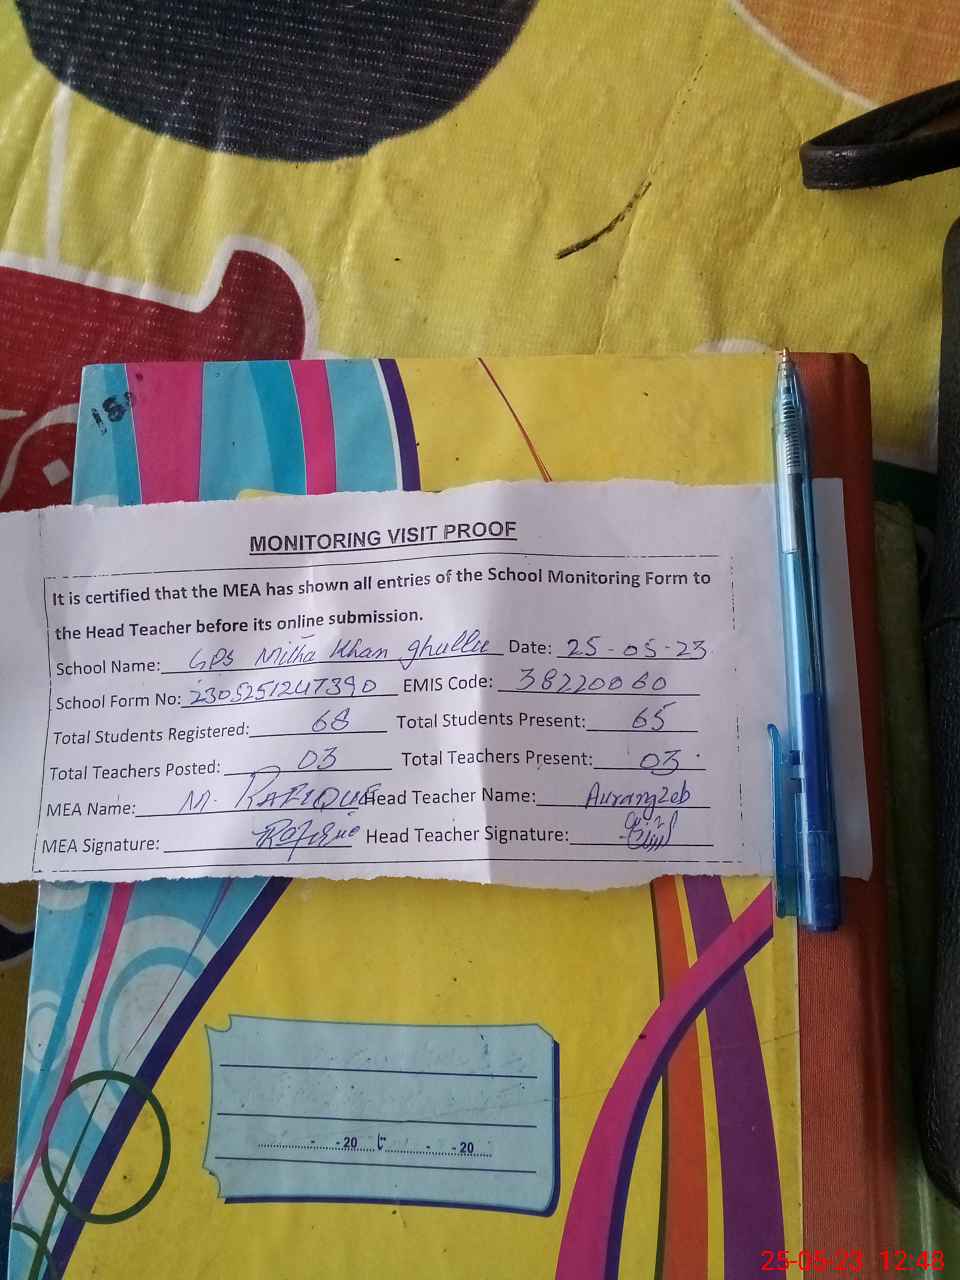 18
MONITORING VISIT PROOF
It is certified that the MEA has shown all entries of the School Monitoring Form to
the Head Teacher before its online submission.
School Name: GPS Mitha Khan ghullu Date: 25-05-23
School Form No: 2305251247390 EMIS Code: 38220060
Total Students Registered: 68 Total Students Present: 65
Total Teachers Posted: 03 Total Teachers Present: 03
MEA Name: M. RAFIQUE Head Teacher Name: Aurangzeb
MEA Signature: Rafique Head Teacher Signature:
- -20 تا - -20
25-05-23 12:48